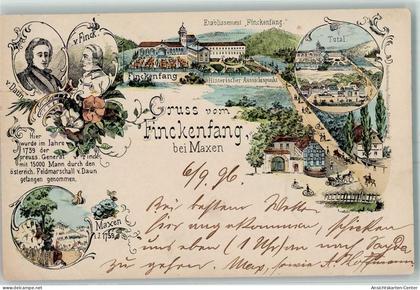 Etablissement „Finckenfang.“
v. Finck.
v. Daun
Finckenfang
Historischer Aussichtspunkt
Total.
Gruss vom
Finckenfang,
bei Maxen
Hier
wurde im Jahre
1759 der
preuss. General v. Finck
mit 15000 Mann durch den
österreich. Feldmarschall v. Daun
gefangen genommen.
Maxen
i. J. 1759
6/9. 96.
Bei bestem Wetter
hier angekommen, schicken
und eben (1 Uhr) nach
zu gehen. Max, sowie A. Hoffmann
www.ansichtskarten-center.de
Ansichtskarten-Center